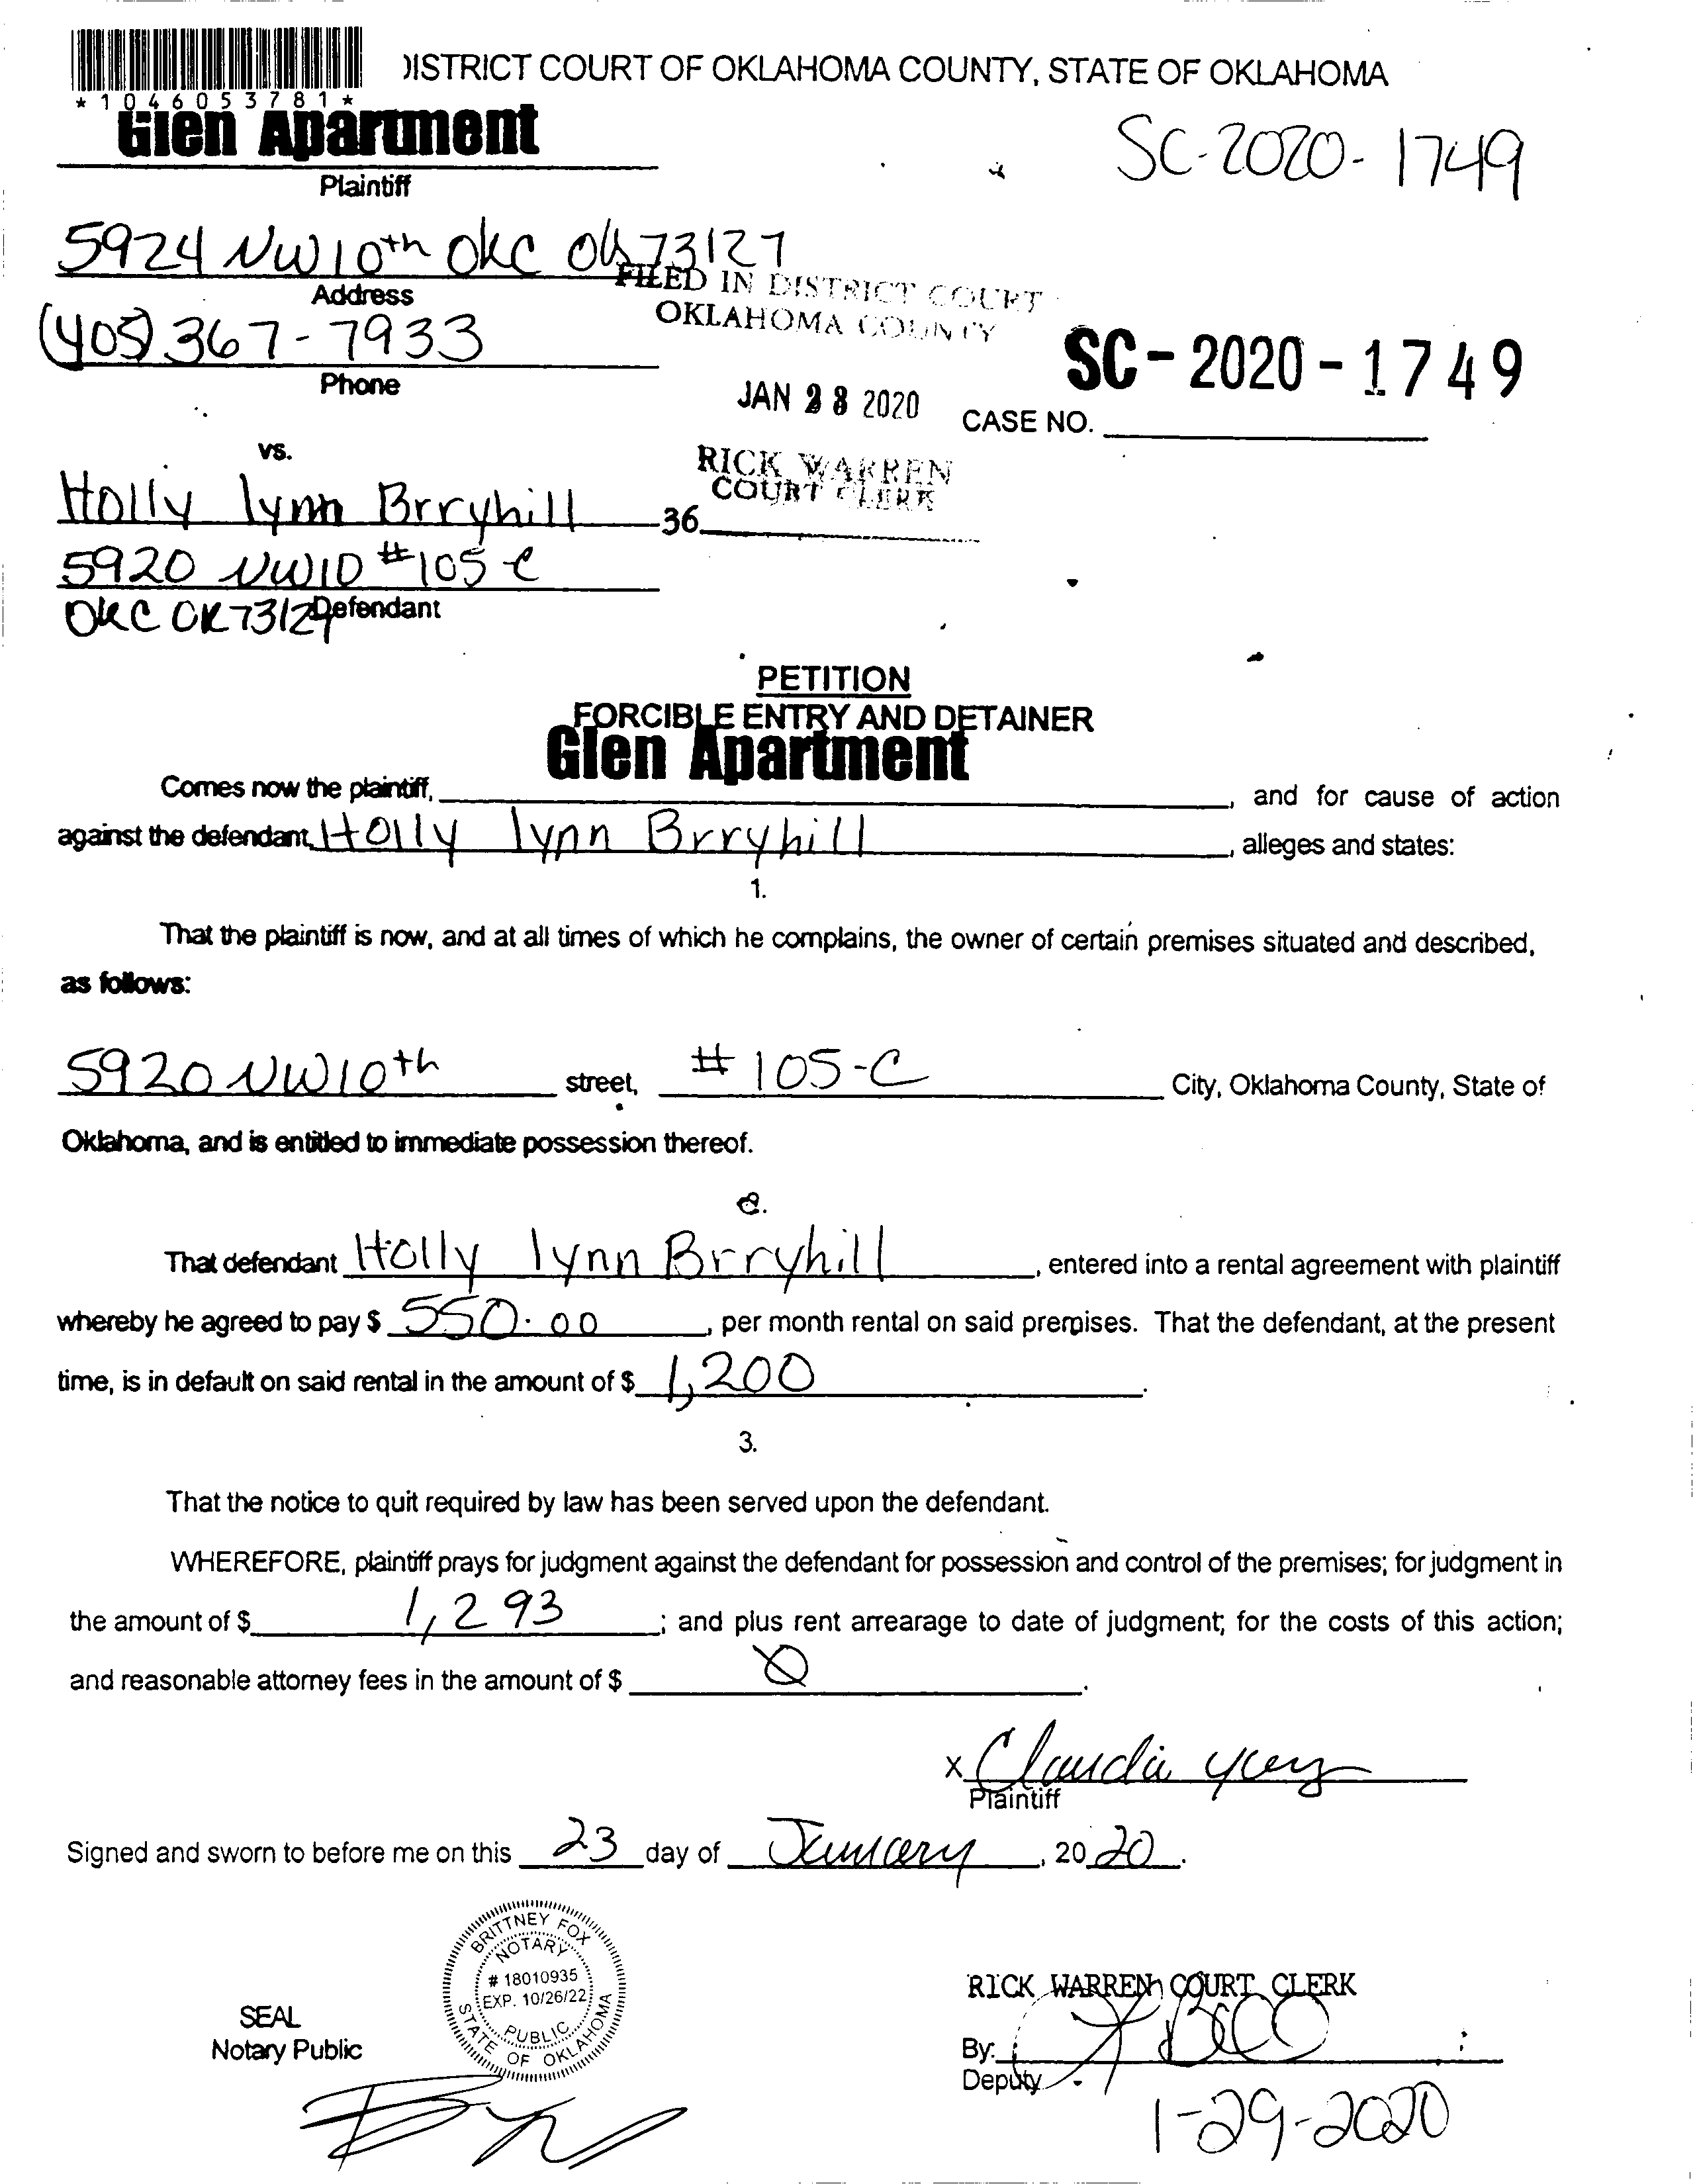 DISTRICT COURT OF OKLAHOMA COUNTY, STATE OF OKLAHOMA
*1046053781*
Glen Apartment
SC-2020-1749
Plaintiff
5924 NW 10th OKC OK 73127
Address
FILED IN DISTRICT COURT
OKLAHOMA COUNTY
(405) 367-7933
Phone
JAN 28 2020
SC-2020-1749
CASE NO.
vs.
RICK WARREN
COURT CLERK
Holly lynn Brryhill
36
5920 NW10 #105-C
OKC OK 73127
Defendant
PETITION
FORCIBLE ENTRY AND DETAINER
Glen Apartment
Comes now the plaintiff, , and for cause of action
against the defendant, Holly lynn Brryhill , alleges and states:
1.
That the plaintiff is now, and at all times of which he complains, the owner of certain premises situated and described,
as follows:
5920 NW 10th street, #105-C City, Oklahoma County, State of
Oklahoma, and is entitled to immediate possession thereof.
2.
That defendant Holly lynn Brryhill , entered into a rental agreement with plaintiff
whereby he agreed to pay $ 550.00 , per month rental on said premises. That the defendant, at the present
time, is in default on said rental in the amount of $ 1,200 .
3.
That the notice to quit required by law has been served upon the defendant.
WHEREFORE, plaintiff prays for judgment against the defendant for possession and control of the premises; for judgment in
the amount of $ 1,293 ; and plus rent arrearage to date of judgment; for the costs of this action;
and reasonable attorney fees in the amount of $ 0 .
x Claudia
Plaintiff
Signed and sworn to before me on this 23 day of January , 2020 .
BRITTNEY FOX
NOTARY
# 18010935
EXP. 10/26/22
PUBLIC
STATE OF OKLAHOMA
SEAL
Notary Public
RICK WARREN COURT CLERK
By:
Deputy
1-29-2020